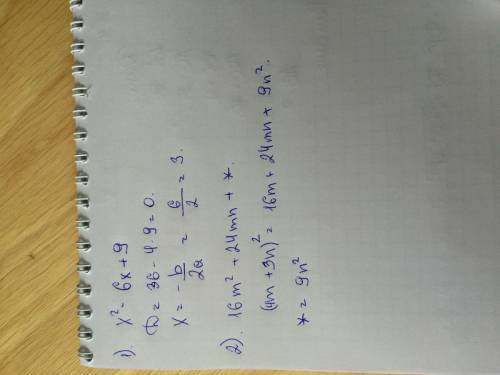 1). x² - 6x + 9
D = 36 - 4·9 = 0.
x = - b/2a = 6/2 = 3.
2). 16m² + 24mn + *.
(4m + 3n)² = 16m + 24mn + 9n².
* = 9n²